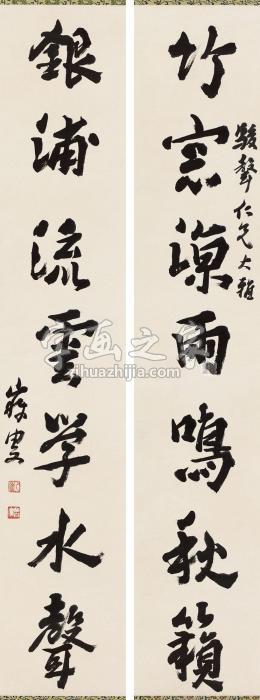 竹窓凉雨鳴秋籟
駿聲仁兄大雅
銀浦流雲学水聲
字画之家
zihuazhijia.com